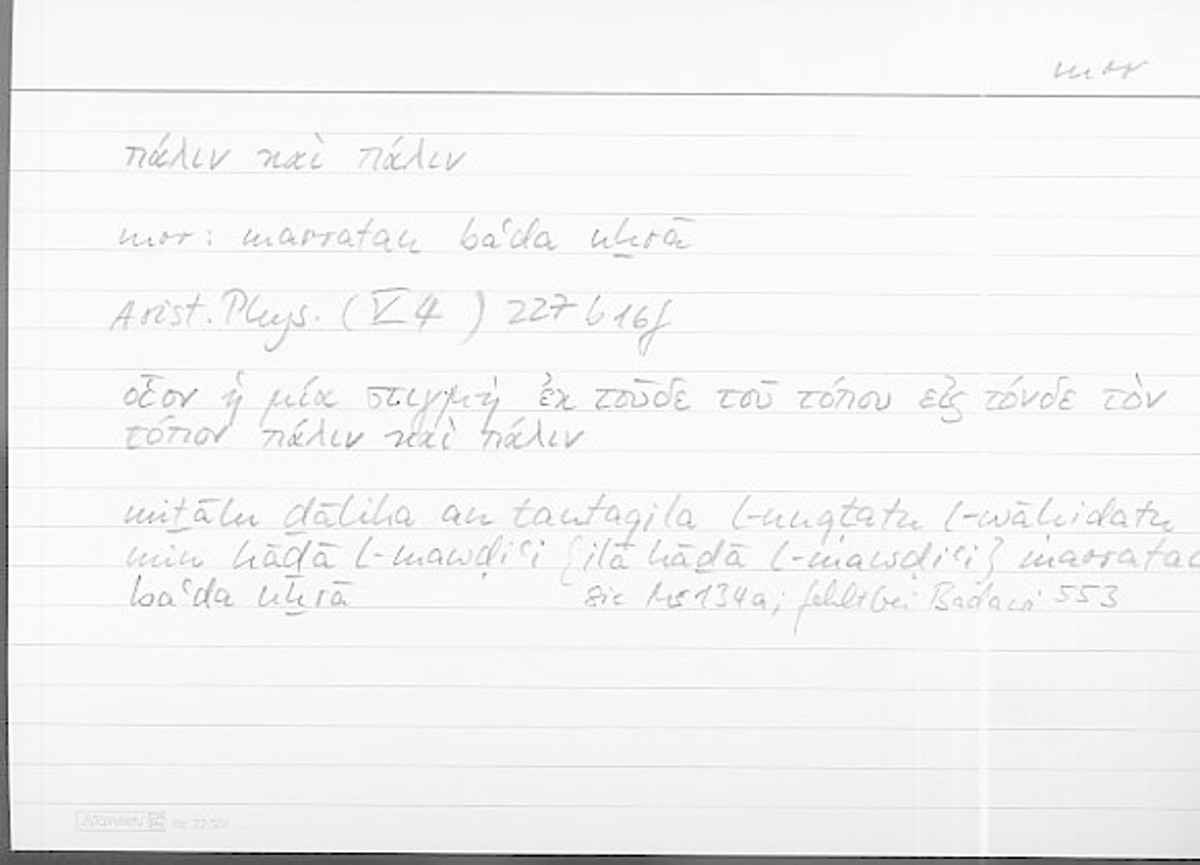 mor
πάλιν καὶ πάλιν
mor: marratan baʿda uḫrā
Arist. Phys. (V 4) 227 b 16f
οἷον ἡ μία στιγμὴ ἐκ τοῦδε τοῦ τόπου εἰς τόνδε τὸν
τόπον πάλιν καὶ πάλιν
miṯālu ḏālika an tantaqila l-nuqṭatu l-wāḥidatu
min hāḏā l-mawḍiʿi {ilā hāḏā l-mawḍiʿi} marratan
baʿda uḫrā
sic Ms 134a; fehlt bei Badawi 553